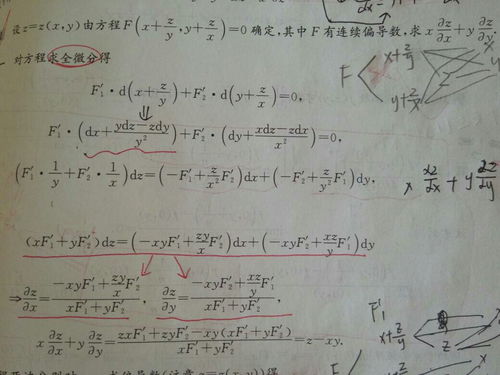 设z=z(x,y)由方程F(x+z/y, y+z/x)=0确定,其中F有连续偏导数,求x ∂z/∂x+y ∂z/∂y.
对方程求全微分得
F′₁·d(x+z/y)+F′₂·d(y+z/x)=0,
F′₁·(dx+(ydz−zdy)/y²)+F′₂·(dy+(xdz−zdx)/x²)=0,
(F′₁·1/y+F′₂·1/x)dz=(−F′₁+z/x² F′₂)dx+(−F′₂+z/y² F′₁)dy,
(xF′₁+yF′₂)dz=(−xyF′₁+zy/x F′₂)dx+(−xyF′₂+xz/y F′₁)dy
⇒∂z/∂x=(−xyF′₁+zy/x F′₂)/(xF′₁+yF′₂), ∂z/∂y=(−xyF′₂+xz/y F′₁)/(xF′₁+yF′₂),
x ∂z/∂x+y ∂z/∂y=(zxF′₁+zyF′₂−xy(xF′₁+yF′₂))/(xF′₁+yF′₂)=z−xy.
F
x+z/y
y+z/x
x ∂z/∂x + y ∂z/∂y
F′₁
x+z/y
z
x